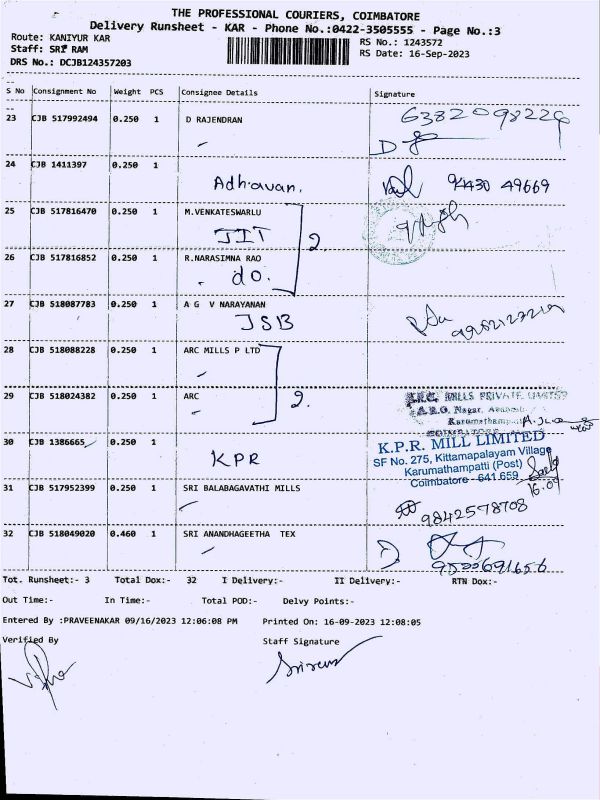 THE PROFESSIONAL COURIERS, COIMBATORE
Delivery Runsheet - KAR - Phone No.:0422-3505555 - Page No.:3
Route: KANIYUR KAR
RS No.: 1243572
Staff: SRI RAM
RS Date: 16-Sep-2023
DRS No.: DCJB124357203
S No Consignment No Weight PCS Consignee Details Signature
23 CJB 517992494 0.250 1 D RAJENDRAN 6382098229
24 CJB 1411397 0.250 1
Adhavan. 94430 49669
25 CJB 517816470 0.250 1 M.VENKATESWARLU
JIT
2
26 CJB 517816852 0.250 1 R.NARASIMNA RAO
do.
27 CJB 518087783 0.250 1 A G V NARAYANAN
JSB
28 CJB 518088228 0.250 1 ARC MILLS P LTD
29 CJB 518024382 0.250 1 ARC
2.
MILLS PRIVATE LIMITED
A.R.C. Nagar,
30 CJB 1386665 0.250 1
KPR
K.P.R. MILL LIMITED
SF No. 275, Kittamapalayam Village
Karumathampatti (Post)
Coimbatore - 641 659
16.09
31 CJB 517952399 0.250 1 SRI BALABAGAVATHI MILLS
9842578708
32 CJB 518049020 0.460 1 SRI ANANDHAGEETHA TEX
9500691656
Tot. Runsheet:- 3 Total Dox:- 32 I Delivery:- II Delivery:- RTN Dox:-
Out Time:- In Time:- Total POD:- Delvy Points:-
Entered By :PRAVEENAKAR 09/16/2023 12:06:08 PM Printed On: 16-09-2023 12:08:05
Verified By Staff Signature